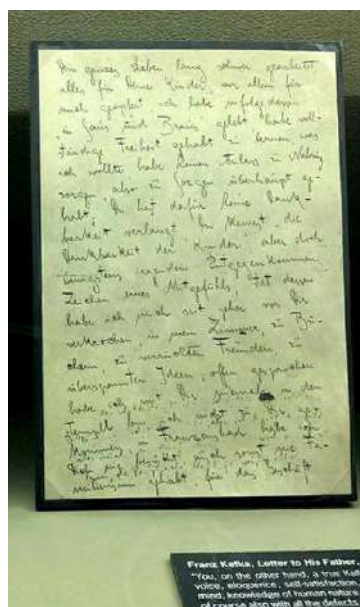 Dein ganzes Leben lang schwer gearbeitet
alles für Deine Kinder, vor allem für
mich geopfert ich habe infolgedessen
"in Saus und Braus" gelebt habe voll-
ständige Freiheit gehabt zu lernen was
ich wollte habe keinen Anlass zu Nahrungs-
sorgen, also zu Sorgen überhaupt ge-
habt; Du hast dafür keine Dank-
barkeit verlangt, Du kennst "die
Dankbarkeit der Kinder" aber doch
wenigstens irgendein Entgegenkommen,
Zeichen eines Mitgefühls; statt dessen
habe ich mich seit jeher vor Dir
verkrochen in mein Zimmer, zu Bü-
chern, zu verrückten Freunden, zu
überspannten Ideen; offen gesprochen
habe ich mit Dir niemals in den
Tempel bin ich nicht zu Dir ge-
kommen, in Franzensbad habe ich
Dich nie besucht auch sonst nie Fa-
miliensinn gehabt, für das Geschäft
Franz Kafka, Letter to His Father,
"You, on the other hand, a true Kaf
voice, eloquence, self-satisfaction,
mind, knowledge of human nature,
of course also with all the defects